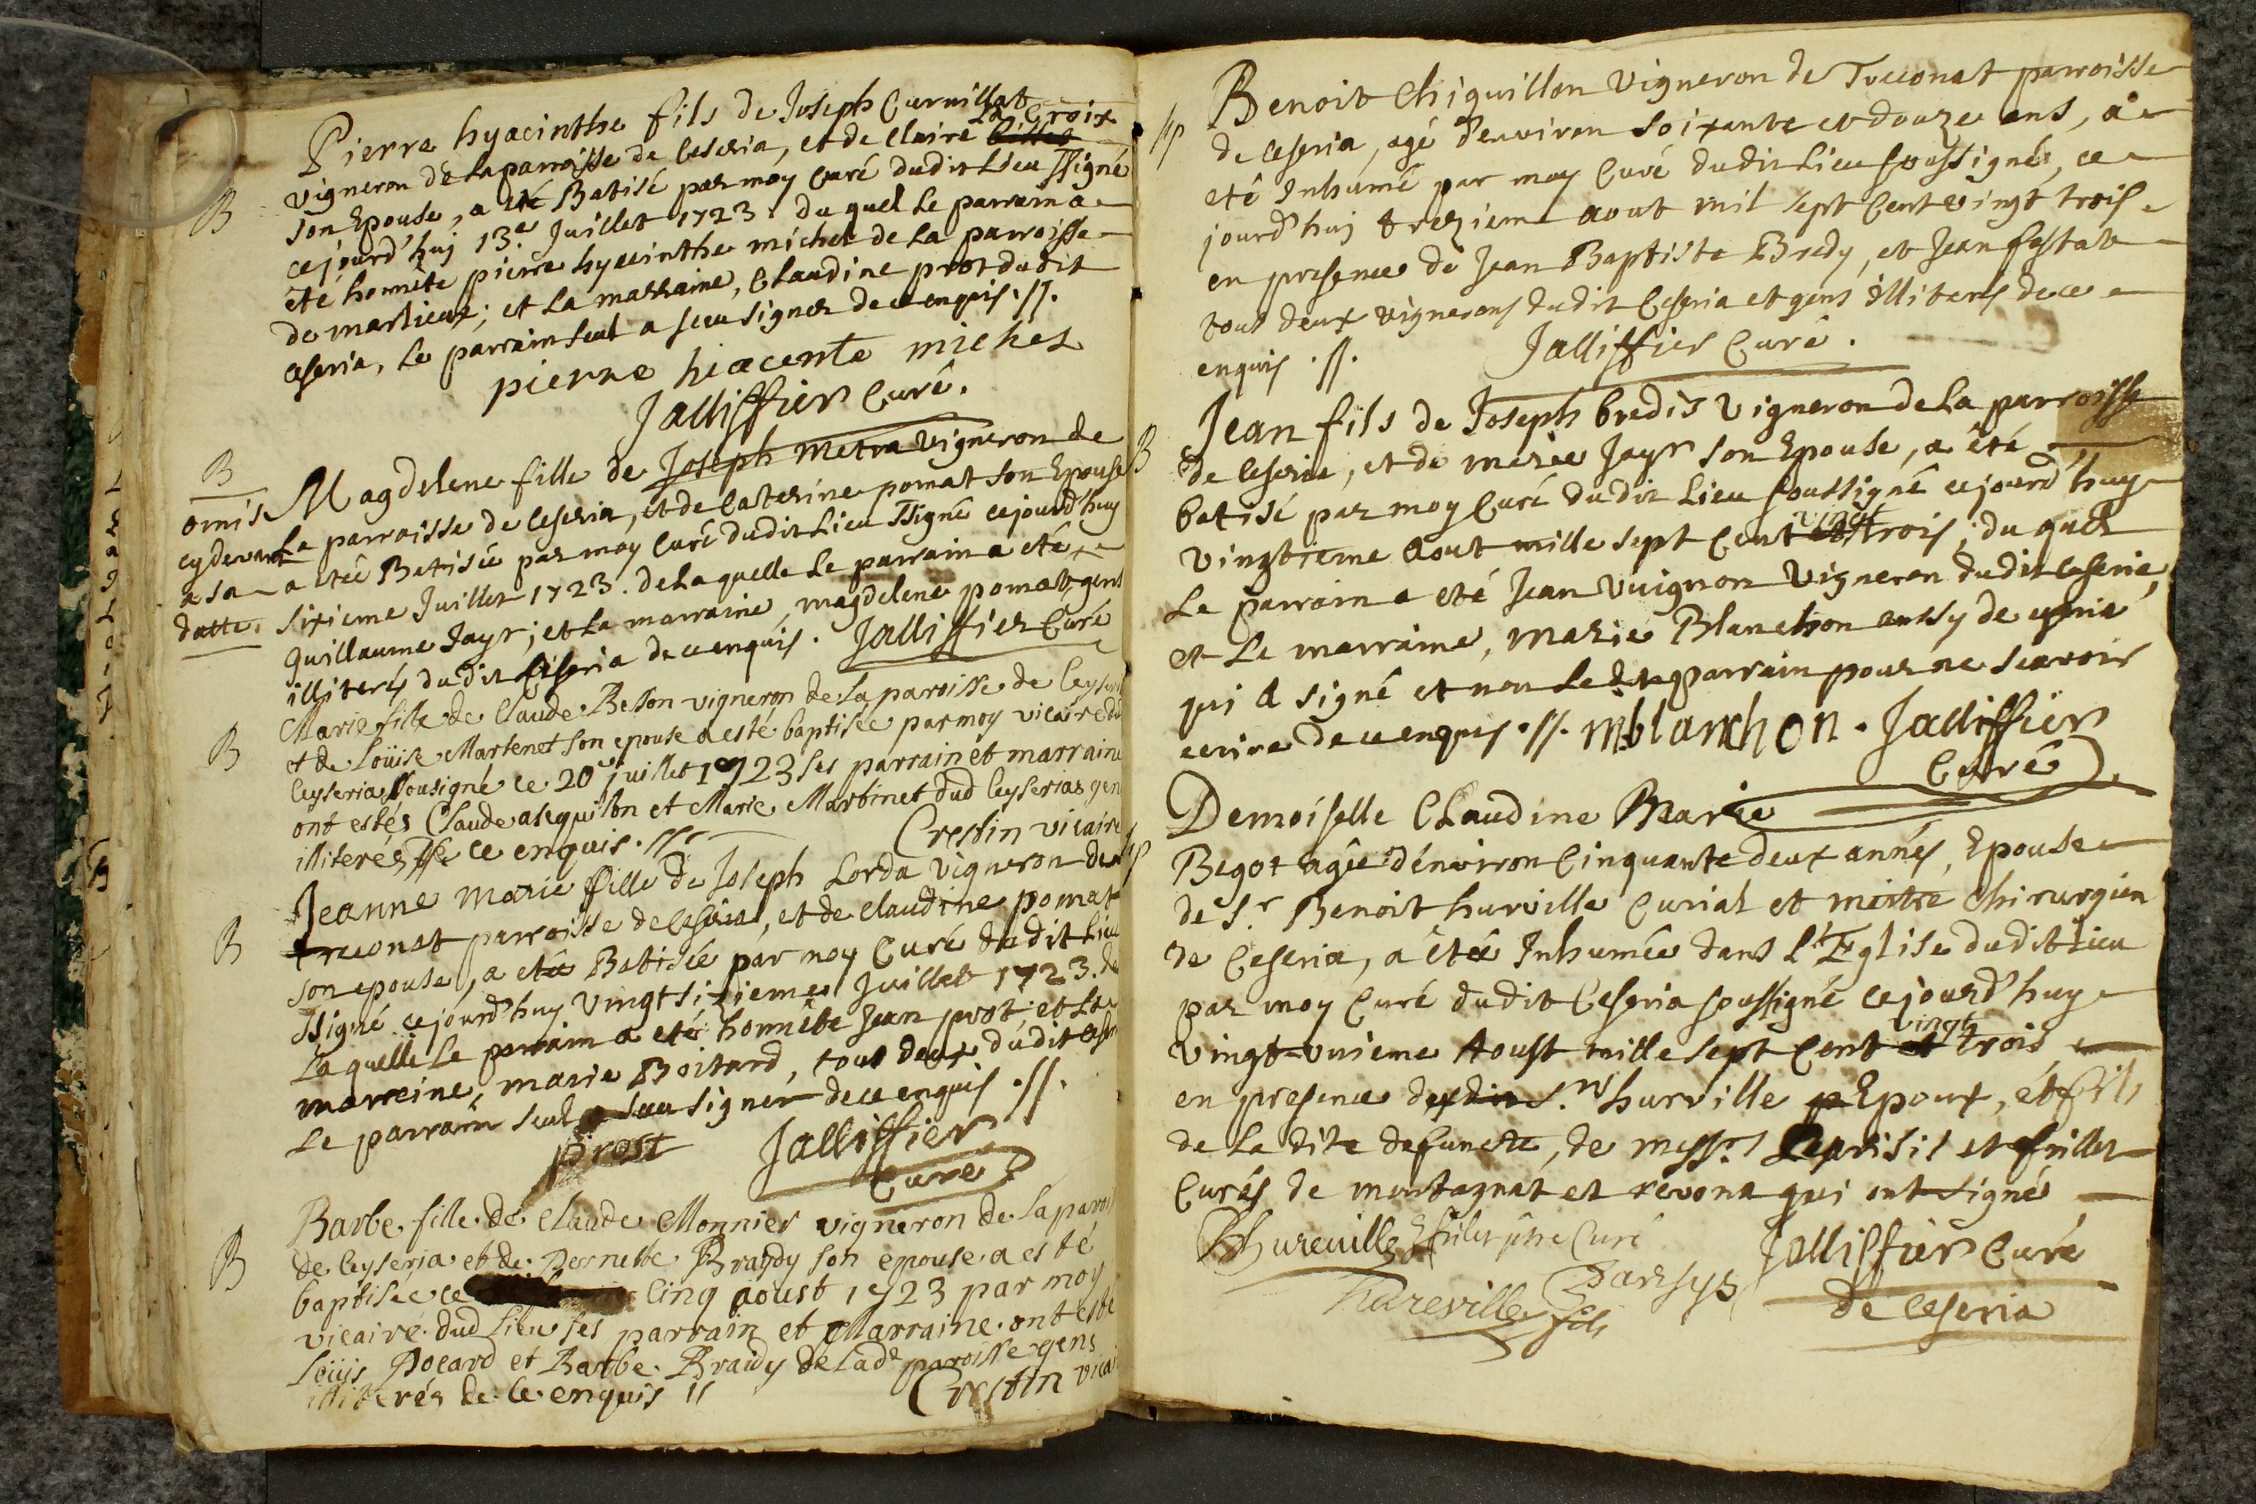 Pierre hyacinthe fils de Joseph Curvillat
vigneron de la parroisse de Ceseria, et de Claire La Croix
B
son Epouse, a eté Batisé par moy Curé dudit Lieu ssigné
cejourd'huy 13.e Juillet 1723. du quel Le parrain a
eté honnête pierre hyacinthe michet de La parroisse
de marlieux; et La marraine, Claudine prot dudit
ceseria, Le parrain seul a sceu signer de ce enquis .//.
pierre hiacente michet
Jalliffier Curé.
B
omis
cy devant
a sa
datte.
Magdelene fille de Joseph metra vigneron de
La parroisse de Ceseria, et de Caterine pomat son Epouse
a eteé Batisée par moy Curé dudit Lieu ssigné cejourd'huy
sixieme Juillet 1723. de La quelle Le parrain a eté
guillaume Jayr; et La marraine, magdelene pomat, gens
illiterés dudit Ceseria de ce enquis. Jalliffier Curé
B
Marie fille de Claude Beson vigneron de la paroisse de Ceyseria
et de Loüise Martenet son epouse a esté baptisée par moy vicaire dud
Ceyseria sousigné ce 20e juillet 1723 ses parrain et marraine
ont estés Claude asequilon et Marie Martinet dud Ceyserias gen
illiterés de ce enquis .//.
Crestin vicaire
B
Jeanne marie fille de Joseph Lorda vigneron de
treconat parroisse de Ceseria, et de Claudine pomat
son epouse, a eteé Batisée par moy Curé dudit Lieu
ssigné cejourd'huy vingt sixieme Juillet 1723. de
La quelle Le parrain a eté honnête Jean prot et La
marreine, marie Boitard, tous deux dudit Ceser
Le parrain seul a sceu signer de ce enquis .//.
prost
Jalliffier
Curé
B
Barbe fille de Claude Monnier vigneron de la parois
de Ceyseria et de Pernette Brandy son epouse a esté
baptisée ce cinq aoust 1723 par moy
vicaire dud Lieu ses parrain et Marraine ont esté
Loüis Pocard et Barbe Braidy de Lade paroisse gens
illiterés de ce enquis //
Crestin vicai
Benoit Chiquillon vigneron de Treconat parroisse
de Ceseria, agé d'environ soixante et douze ans, a
eté Inhumé par moy Curé dudit Lieu soussigné, ce
jourd'huy trezieme aout mil sept Cent vingt trois
en presence de Jean Baptiste Bredy, et Jean fastat
tout deux vignerons dudit Ceseria et gens illiterés de ce
enquis .//.
Jalliffier Curé.
B
Jean fils de Joseph bredis vigneron de La parroisse
de Ceseria, et de marie Jayr son Epouse, a été
batisé par moy Curé dudit Lieu soussigné cejourd'huy
vingtieme Aout mille sept Cent vingt trois, du quel
Le parrain a eté Jean vuignon vigneron dudit Ceseria,
et La marraine, marie Blanchon aussy de ceseria
qui a signé et non Ledit parrain pour ne scavoir
ecrire de ce enquis .//. m.blanchon. Jalliffier
Curé
Demoiselle Claudine Marie
Begot agée d'environ Cinquante deux années, Epouse
de S.r Benoit hurville Curial et maitre Chirurgien
de Ceseria, a étée Inhumée dans L'Eglise dudit Lieu
par moy Curé dudit Ceseria soussigné cejourd'huy
vingt-unieme Aoust mille sept Cent vingt trois
en presence desdits S.rs hurville Epoux, et fils
de La dite defuncte, de mess.rs et fuillet
Curés de montagnat et revona qui ont signé
Bhureville Effuilet ptre Curé
Jalliffier Curé
de Ceseria
Darsys
hureville fils